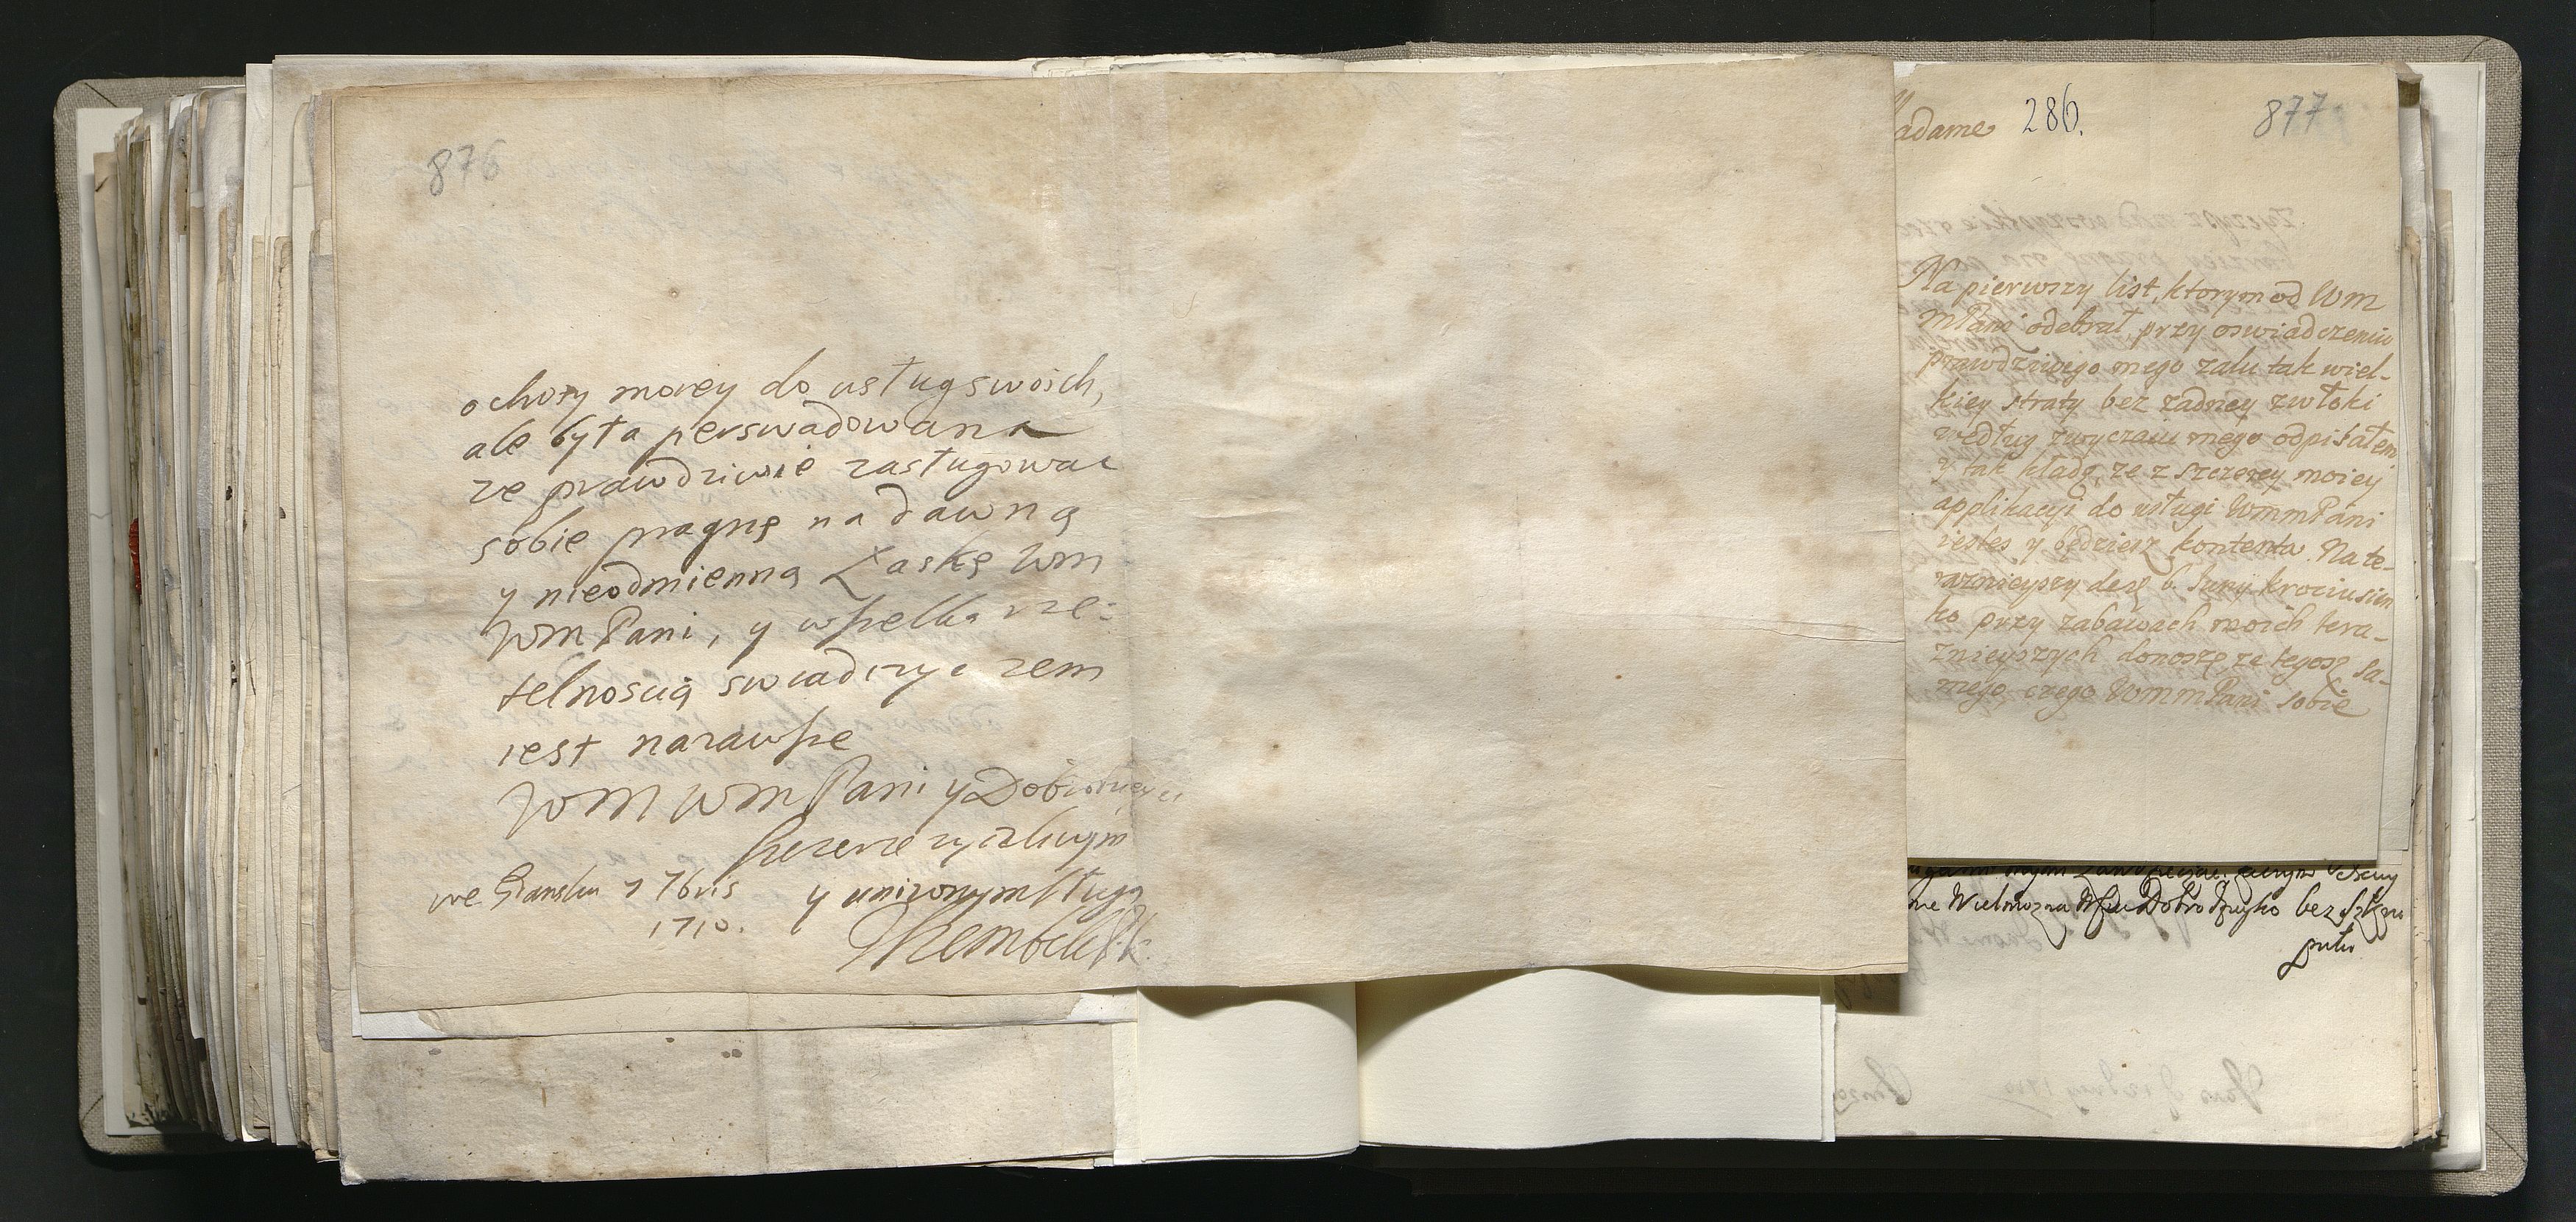 876
ochoty moiey do usług swoich,
ale była perswadowana
ze prawdziwie zasługowac
sobie pragnę na dawną
y nieodmienną Łaskę Wm
WmPani, y wszelką rze:
telnoscią swiadczyc zem
iest narawsze
WM WM Pani y Dobrodzieyki
szczerze zyczliwym
we Gdansku 7 7bris y unizonym sługą
1710.
Szembek
adame 286. 877
Na pierwszy list, ktorym od Wm
mPani odebrał, przy oswiadczeniu
prawdziwego mego zalu tak wiel-
kiey straty bez zadney zwłoki
według zwyczaiu mego odpisałem
y tak kładę, ze z szczerey moiey
applikacyi do usługi WmmPani
iestes y będziesz kontenta. Na te-
raznieyszy de 6. Juny krociusien
ko przy zabawach moich tera-
znieyszych donoszę, ze tegosz sa-
mego czego WmmPani sobie
Wielmozna Dobrodzieyko bez